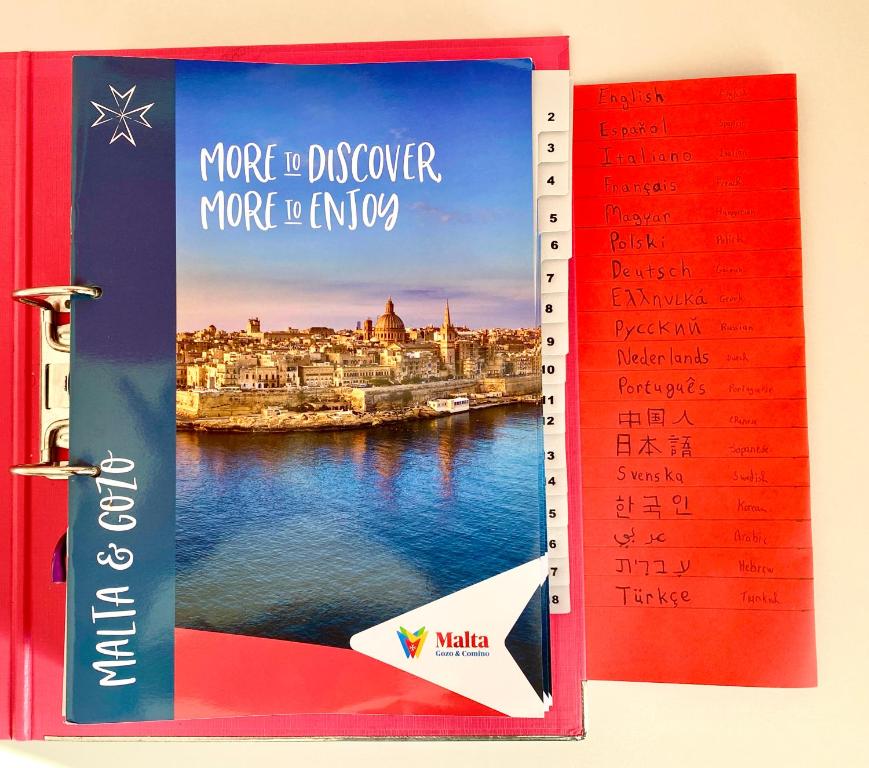 MORE TO DISCOVER
MORE TO ENJOY
MALTA & GOZO
Malta
Gozo & Comino
2
3
4
5
6
7
8
9
10
11
12
3
4
5
6
7
8
English English
Español Spanish
Italiano Italian
Français French
Magyar Hungarian
Polski Polish
Deutsch German
Ελληνικά Greek
Русский Russian
Nederlands Dutch
Português
中国人 Chinese
日本語 Japanese
Svenska Swedish
한국인 Korean
عربي Arabic
עברית Hebrew
Türkçe Turkish